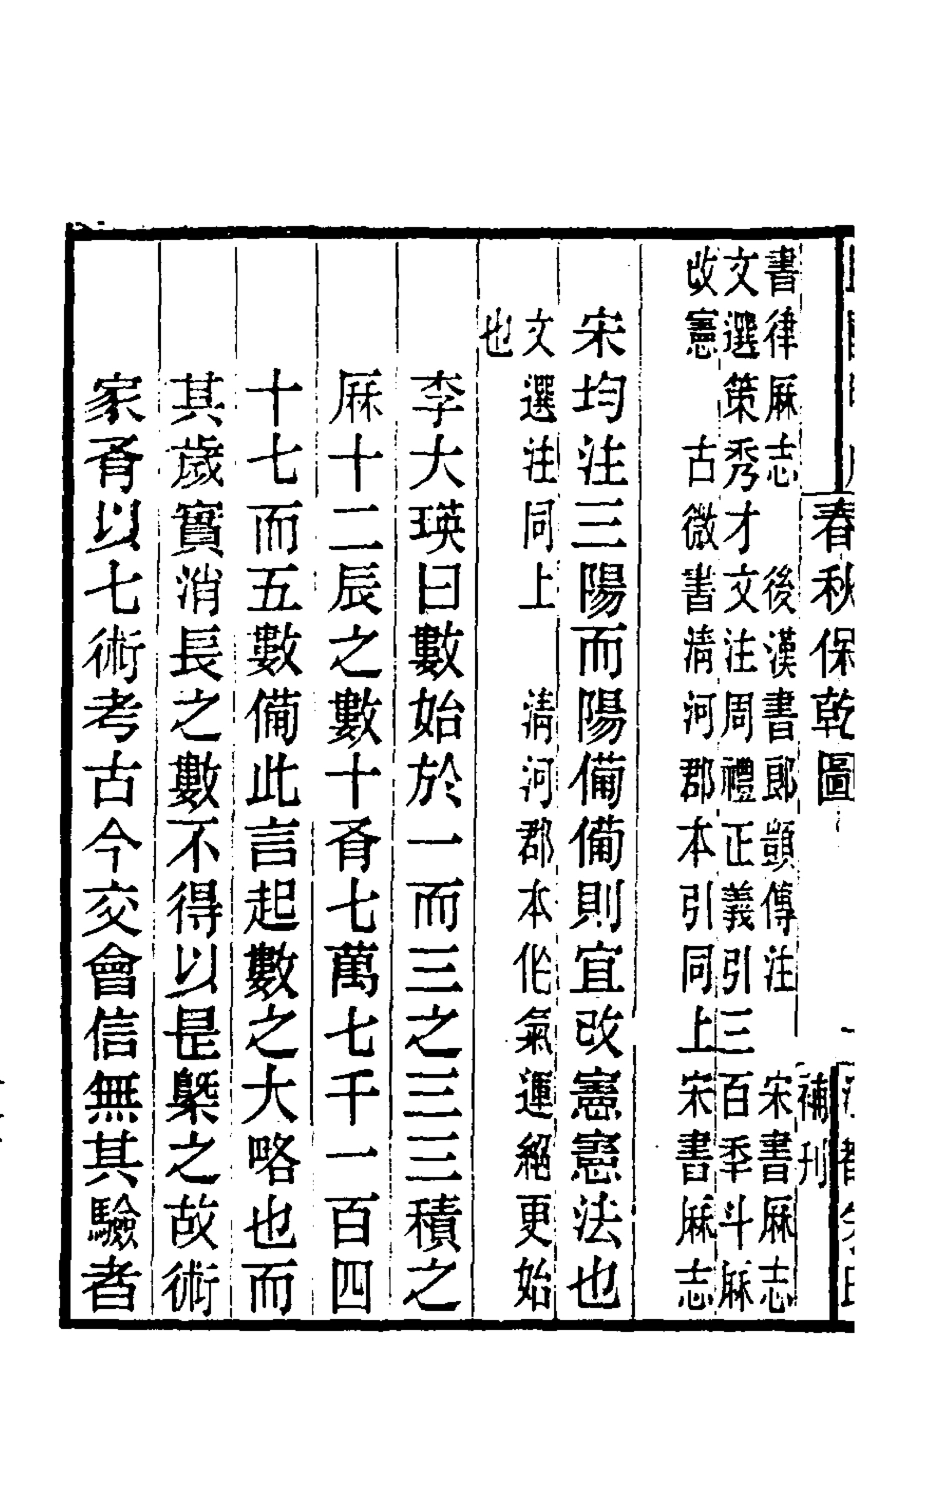 春秋保乾圖
補刊
書律厤志　後漢書郞顗傳注　宋書厤志
文選策秀才文注周禮正義引三百秊斗厤
改憲　古微書淸河郡本引同上宋書厤志
宋均注三陽而陽備備則宜改憲憲法也
文選注同上　淸河郡本作氣運絕更始
也
李大瑛曰數始於一而三之三三積之
厤十二辰之數十有七萬七千一百四
十七而五數備此言起數之大略也而
其歲實消長之數不得以是槩之故術
家有以七術考古今交會信無其驗者